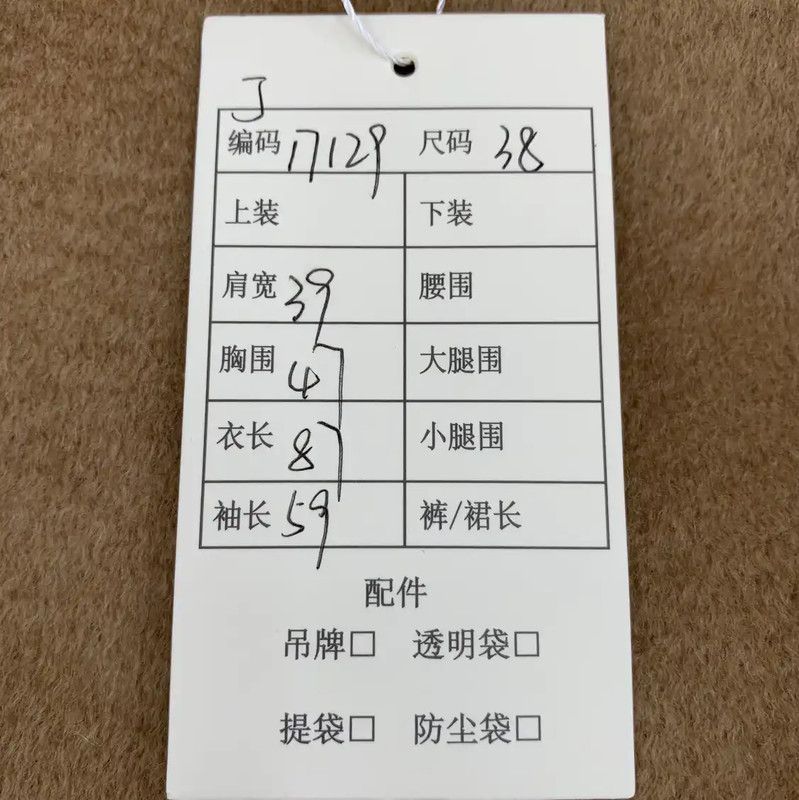 J
编码 17129 尺码 38
上装 下装
肩宽 39 腰围
胸围 47 大腿围
衣长 87 小腿围
袖长 59 裤/裙长
配件
吊牌□ 透明袋□
提袋□ 防尘袋□